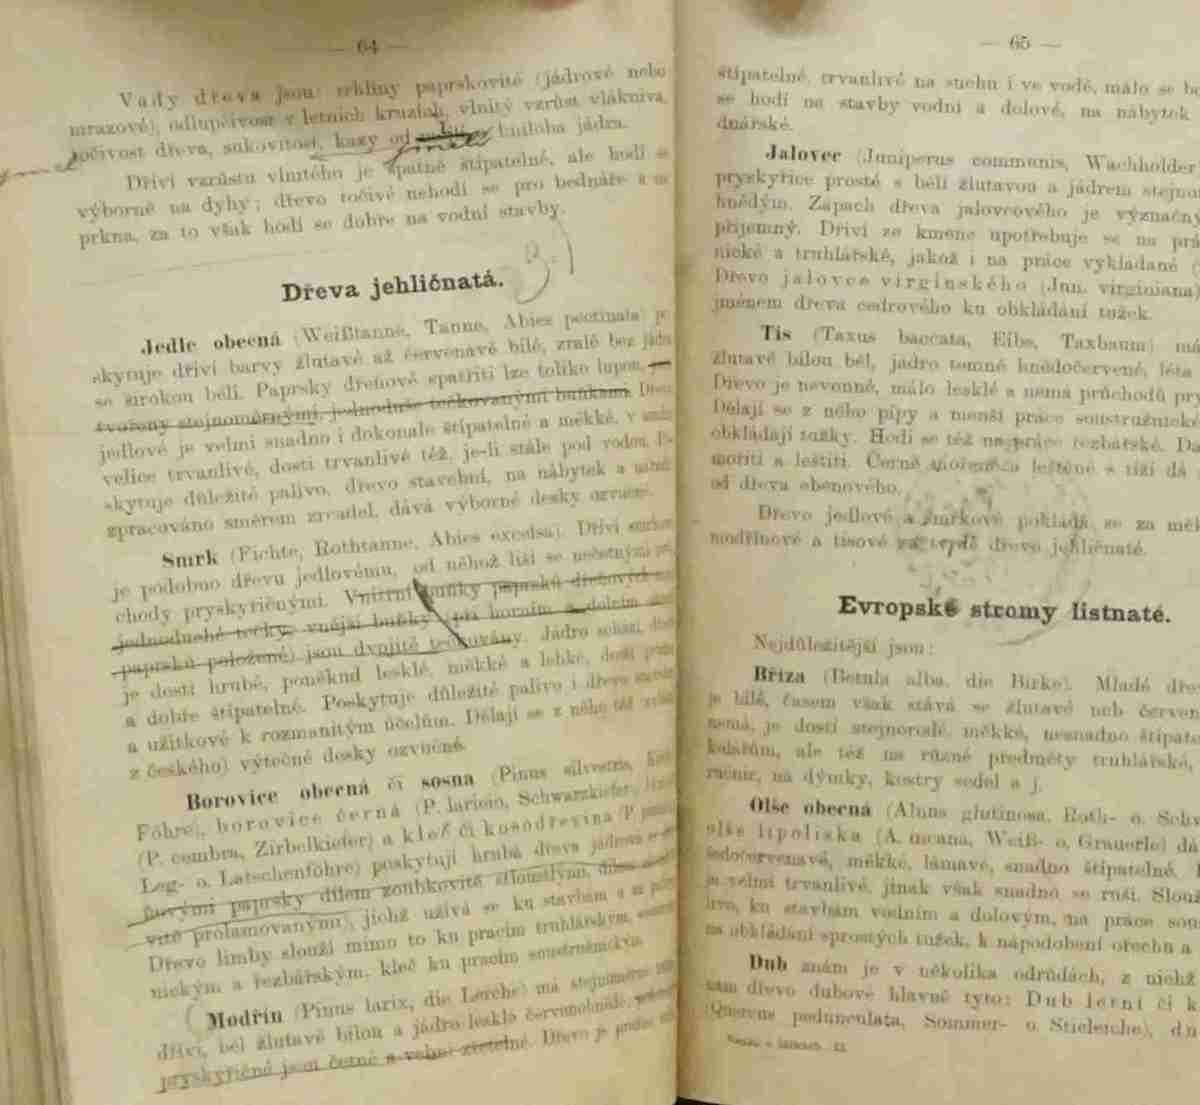 — 64 —
Vady dřeva jsou: trhliny paprskovité (jádrové nebo
mrazové), odlupčivost v letních kruzích, vlnitý vzrůst vlákniva,
točivost dřeva, sukovitost, kazy od hniloba jádra.
Dříví vzrůstu vlnitého je špatně štípatelné, ale hodí se
výborně na dyhy; dřevo točivé nehodí se pro bednáře a na
prkna, za to však hodí se dobře na vodní stavby.
Dřeva jehličnatá.
Jedle obecná (Weißtanne, Tanne, Abies pectinata) po-
skytuje dříví barvy žlutavé až červenavě bílé, zralé bez jádra
se širokou bělí. Paprsky dřeňové spatřiti lze toliko lupou,
tvořeny stejnoměrnými, jednoduše tečkovanými buňkami. Dřevo
jedlové je velmi snadno i dokonale štípatelné a měkké, v suchu
velice trvanlivé, dosti trvanlivé též, je-li stále pod vodou. Po-
skytuje důležité palivo, dřevo stavební, na nábytek a
zpracováno směrem zrcadel, dává výborné desky ozvučné.
Smrk (Fichte, Rothtanne, Abies excelsa). Dříví smrkové
je podobno dřevu jedlovému, od něhož liší se nečetnými prů-
chody pryskyřičnými. Vnitřní buňky paprsků dřeňových mají
jednoduché tečky, vnější buňky (při horním a dolním
paprsků položené) jsou dvojitě tečkovány. Jádro schází, dřevo
je dosti hrubé, poněkud lesklé, měkké a lehké, dosti pružné
a dobře štípatelné. Poskytuje důležité palivo i dřevo stavební
a užitkové k rozmanitým účelům. Dělají se z něho též
z českého) výtečné desky ozvučné.
Borovice obecná či sosna (Pinus silvestris,
Föhre), borovice černá (P. laricio, Schwarzkiefer)
(P. cembra, Zirbelkiefer) a kleč či kosodřevina (P.
Leg- o. Latschenföhre) poskytují hrubá dřeva jádrová
ňovými paprsky dílem zoubkovitě stloustlými, dílem
vitě prolamovanými), jichž užívá se ku stavbám a za palivo
Dřevo limby slouží mimo to ku pracím truhlářským,
nickým a řezbářským, kleč ku pracím soustružnickým.
Modřín (Pinus larix, die Lerche) má stejnoměrné
dříví, běl žlutavě bílou a jádro lesklé červenohnědé,
pryskyřičné jsou četné a velmi zřetelné. Dřevo je
— 65 —
štípatelné, trvanlivé na suchu i ve vodě, málo se bo
se hodí na stavby vodní a dolové, na nábytek
dnářské.
Jalovec (Juniperus communis, Wachholder
pryskyřice prosté s bělí žlutavou a jádrem stejno
hnědým. Zápach dřeva jalovcového je význačný
příjemný. Dříví ze kmene upotřebuje se na prá
nické a truhlářské, jakož i na práce vykládané (
Dřevo jalovce virginského (Jun. virginiana)
jménem dřeva cedrového ku obkládání tužek.
Tis (Taxus baccata, Eibe, Taxbaum) má
žlutavě bílou běl, jádro temně hnědočervené, léta
Dřevo je nevonné, málo lesklé a nemá průchodů pry
Dělají se z něho pípy a menší práce soustružnické
obkládají tužky. Hodí se též na práce řezbářské. Dá
mořiti a leštiti. Černě mořeno a leštěné s tíží dá
od dřeva ebenového.
Dřevo jedlové a smrkové pokládá se za měk
modřínové a tisové za tvrdé dřevo jehličnaté.
Evropské stromy listnaté.
Nejdůležitější jsou:
Bříza (Betula alba, die Birke). Mladé dřev
je bílé, časem však stává se žlutavé neb červen
nemá, je dosti stejnorosté, měkké, nesnadno štípate
kolářům, ale též na různé předměty truhlářské,
račnic, na dýmky, kostry sedel a j.
Olše obecná (Alnus glutinosa, Roth- o. Schw
olše lipoliská (A. incana, Weiß- o. Grauerle) dá
šedočervenavé, měkké, lámavé, snadno štípatelné.
je velmi trvanlivé, jinak však snadno se ruší. Slouž
livo, ku stavbám vodním a dolovým, na práce sou
na obkládání sprostých tužek, k nápodobení ořechu a
Dub znám je v několika odrůdách, z nichž
nám dřevo dubové hlavně tyto: Dub letní či k
(Quercus pedunculata, Sommer- o. Stieleiche), du